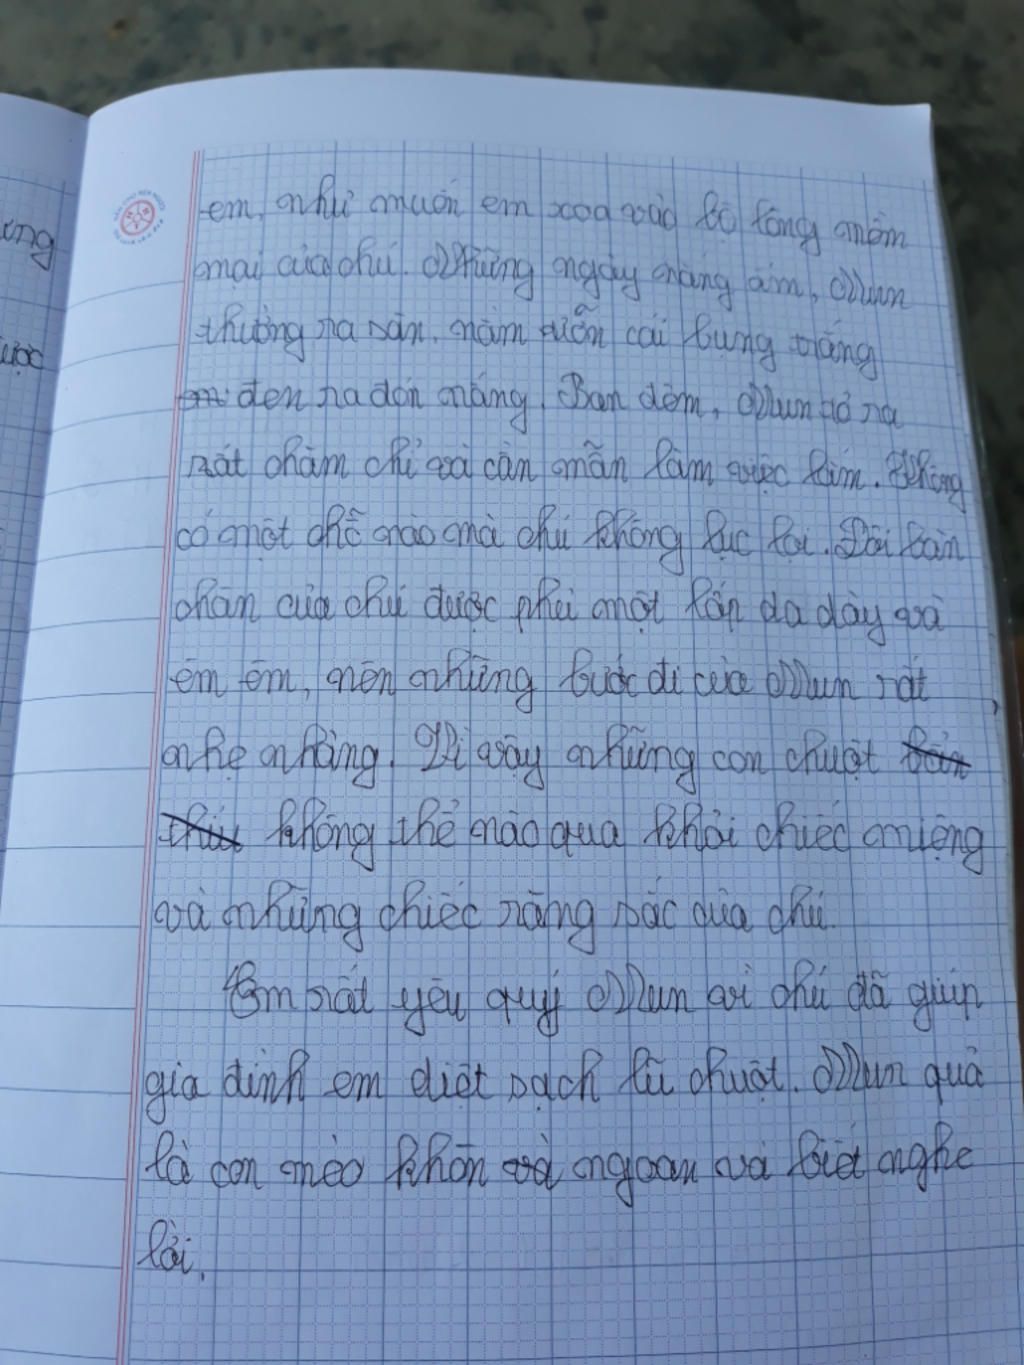 ưng
ược
em, như muốn em xoa vào bộ lông mềm
mại của chú. Những ngày nắng ấm, Mun
thường ra sân, nằm ưỡn cái bụng trắng
đen ra đón nắng. Ban đêm, Mun tỏ ra
rất chăm chỉ và cần mẫn làm việc lắm. Không
có một chỗ nào mà chú không lục lọi. Đôi bàn
chân của chú được phủ một lớp da dày và
êm êm, nên những bước đi của Mun rất
nhẹ nhàng. Vì vậy những con chuột bẩn
thỉu không thể nào qua khỏi chiếc miệng
và những chiếc răng sắc của chú.
Em rất yêu quý Mun vì chú đã giúp
gia đình em diệt sạch lũ chuột. Mun quả
là con mèo khôn và ngoan và biết nghe
lời.